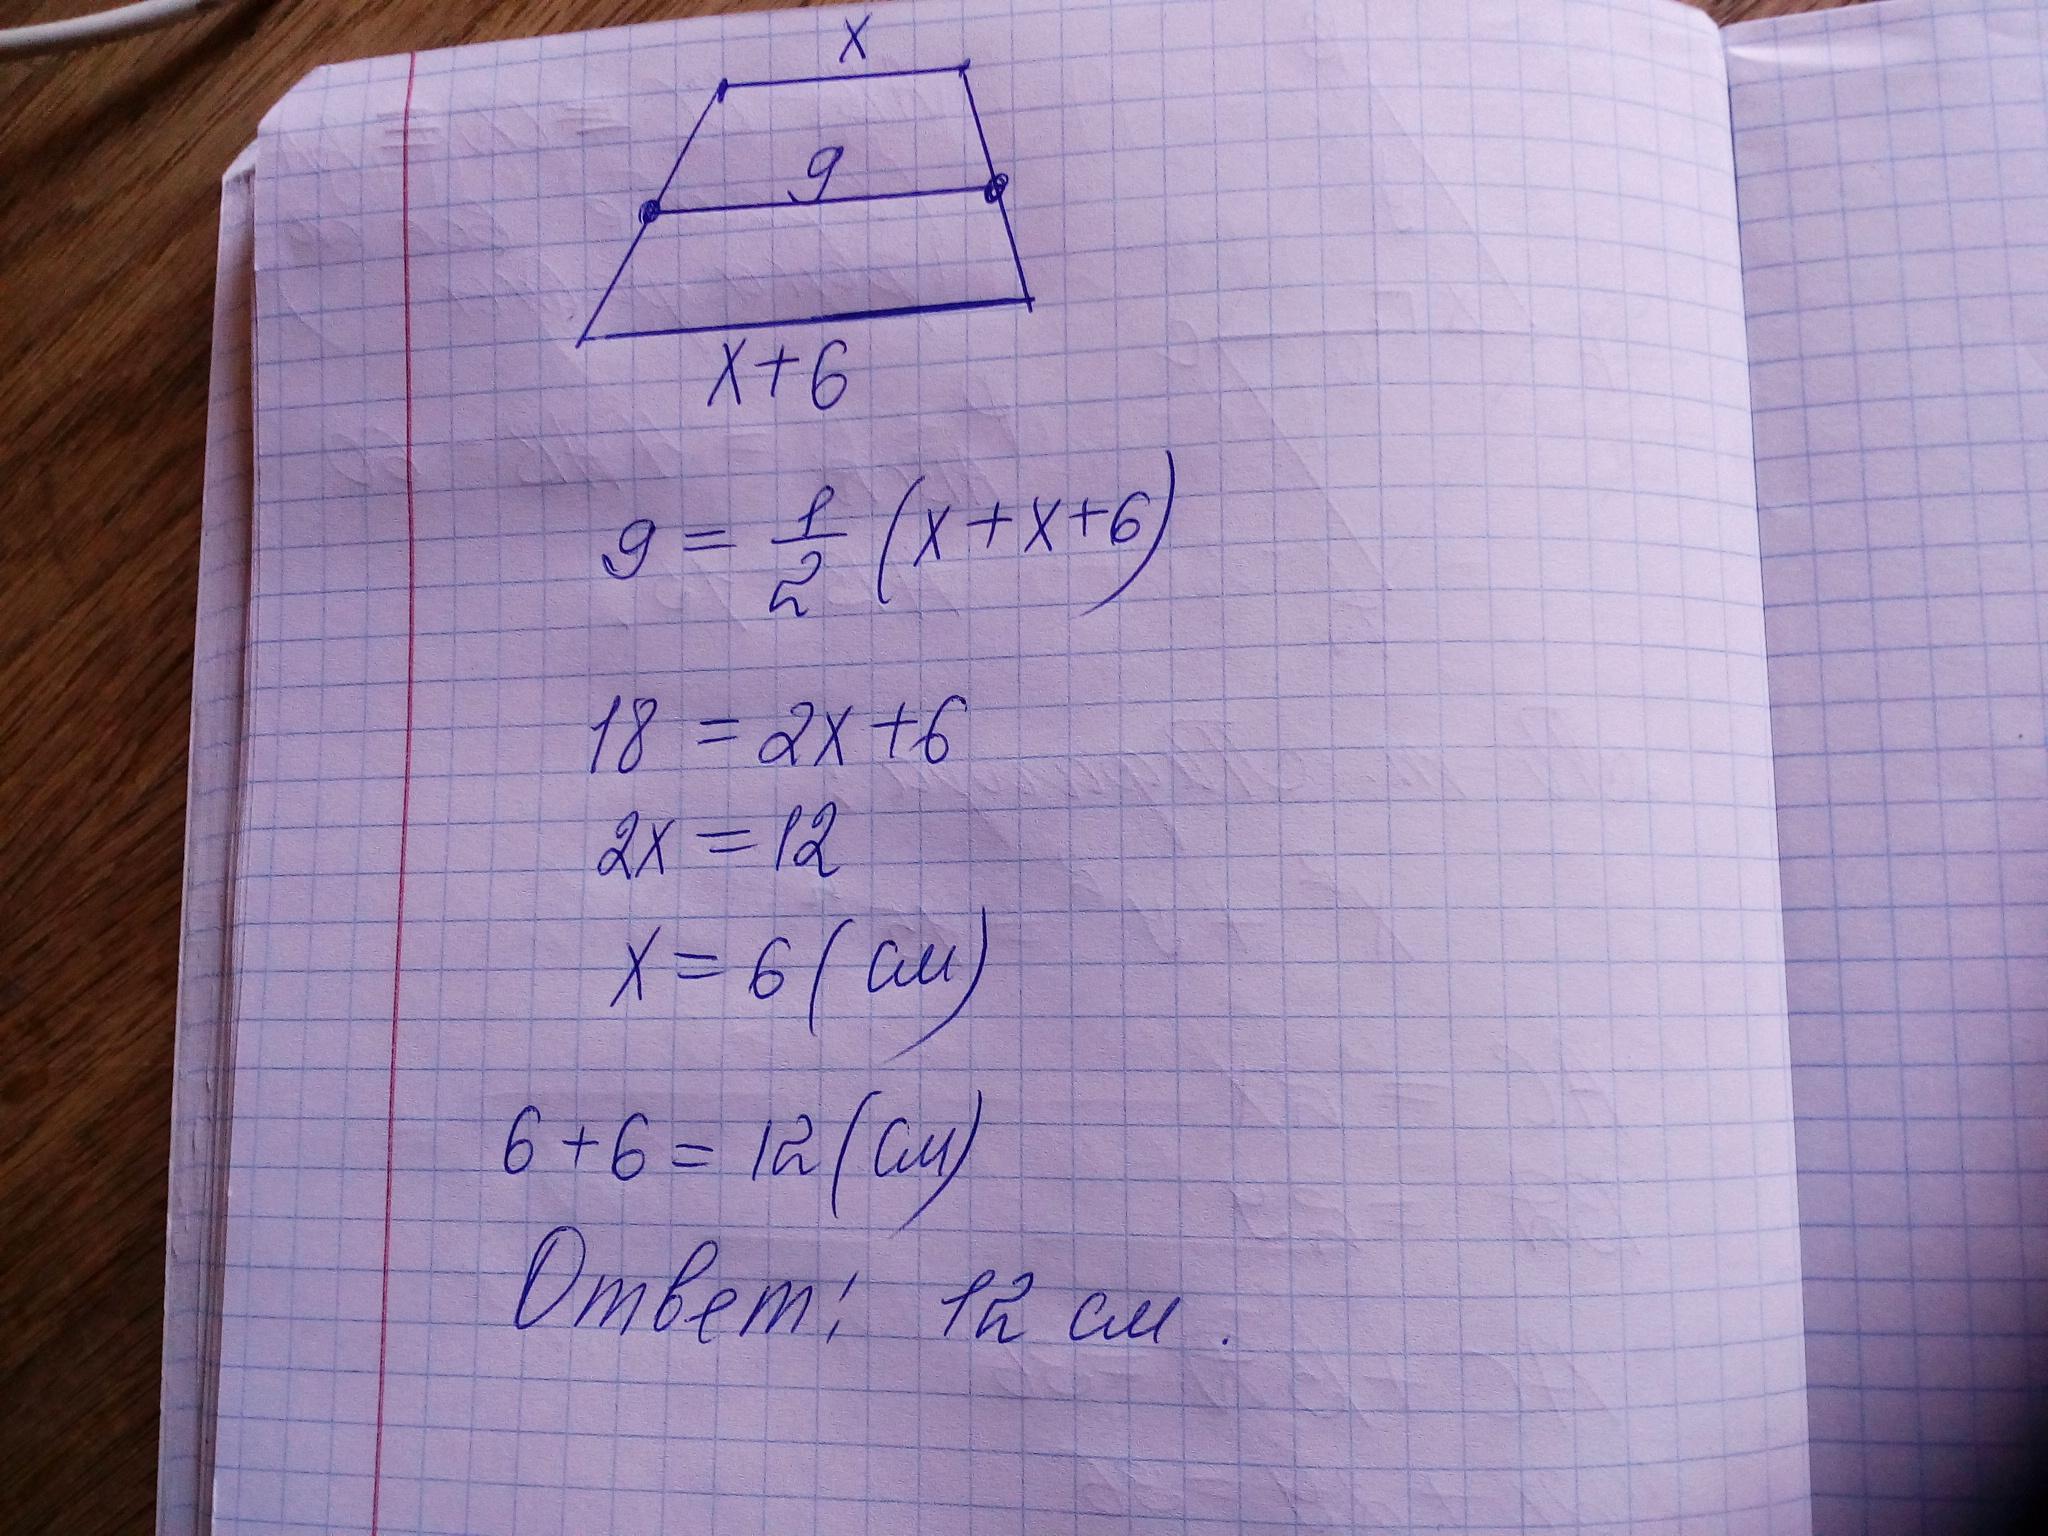 x
9
x+6
9 = 1/2 (x+x+6)
18 = 2x+6
2x = 12
x = 6 (см)
6+6 = 12 (см)
Ответ: 12 см.